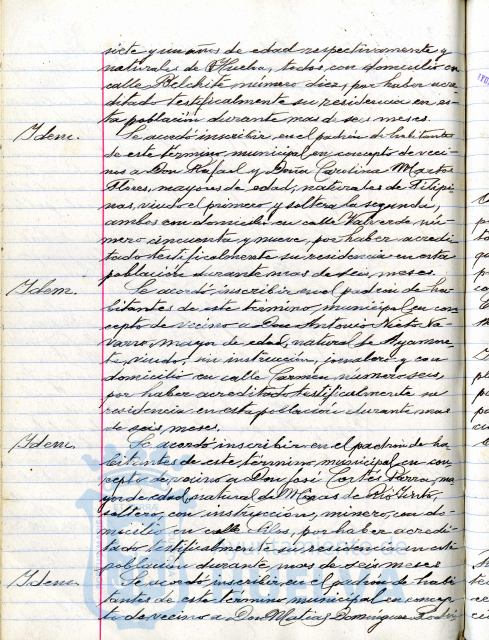 siete y un años de edad respectivamente y
naturales de Huelva, todos con domicilio en
calle Belchite número diez, por haber acre-
ditado testificalmente su residencia en es-
ta población durante mas de seis meses.
Idem. Se acordó inscribir en el padrón de habitantes
de este término municipal en concepto de veci-
nos a Don Rafael y Doña Carolina Martos
Flores, mayores de edad, naturales de Filipi-
nas, viudo el primero y soltera la segunda,
ambos con domicilio en calle Valverde nú-
mero cincuenta y nueve, por haber acredi-
tado testificalmente su residencia en esta
población durante mas de seis meses.
Idem. Se acordó inscribir en el padrón de ha-
bitantes de este término municipal en con-
cepto de vecino a Don Antonio Nieto Na-
varro, mayor de edad, natural de Ayamon-
te, viudo, sin instrucción, jornalero y con
domicilio en calle Carmen número seis,
por haber acreditado testificalmente su
residencia en esta población durante mas
de seis meses.
Idem. Se acordó inscribir en el padrón de ha-
bitantes de este término municipal en con-
cepto de vecino a Don José Cortés Parra, ma-
yor de edad, natural de Minas de Río Tinto,
soltero, con instrucción, minero, con do-
micilio en calle Silos, por haber acredi-
tado testificalmente su residencia en esta
población durante mas de seis meses
Idem. Se acordó inscribir en el padrón de habi-
tantes de este término municipal en concep-
to de vecino a Don Matías Domínguez Rodrí
Ayuntamiento de
HUELVA